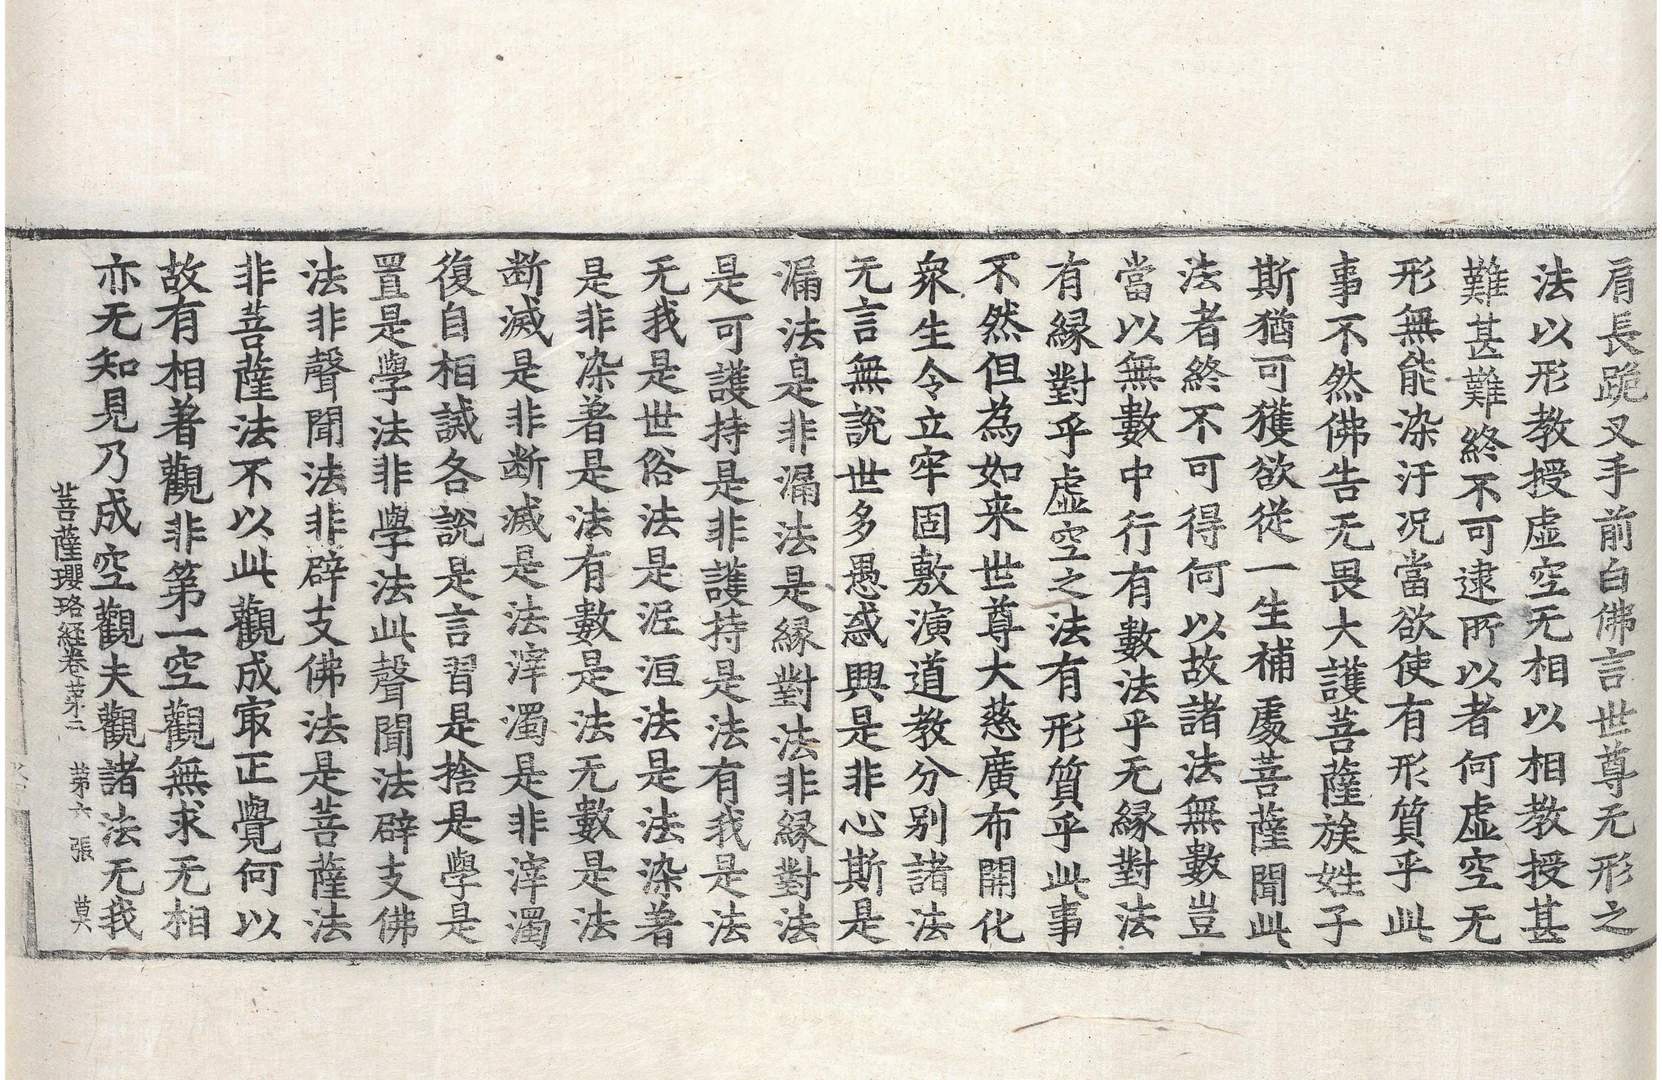 肩長跪叉手前白佛言世尊无形之
法以形教授虛空无相以相教授甚
難甚難終不可逮所以者何虛空无
形無能染汙况當欲使有形質乎此
事不然佛告无畏大護菩薩族姓子
斯猶可獲欲從一生補處菩薩聞此
法者終不可得何以故諸法無數豈
當以無數中行有數法乎无緣對法
有緣對乎虛空之法有形質乎此事
不然但為如来世尊大慈廣布開化
衆生令立牢固敷演道教分別諸法
无言無說世多愚惑興是非心斯是
漏法是非漏法是緣對法非緣對法
是可護持是非護持是法有我是法
无我是世俗法是泥洹法是法染著
是非染著是法有數是法无數是法
断滅是非断滅是法滓濁是非滓濁
復自相誡各說是言習是捨是學是
置是學法非學法此聲聞法辟支佛
法非聲聞法非辟支佛法是菩薩法
非菩薩法不以此觀成㝡正覺何以
故有相著觀非第一空觀無求无相
亦无知見乃成空觀夫觀諸法无我
菩薩瓔珞経卷苐二 苐六張 莫